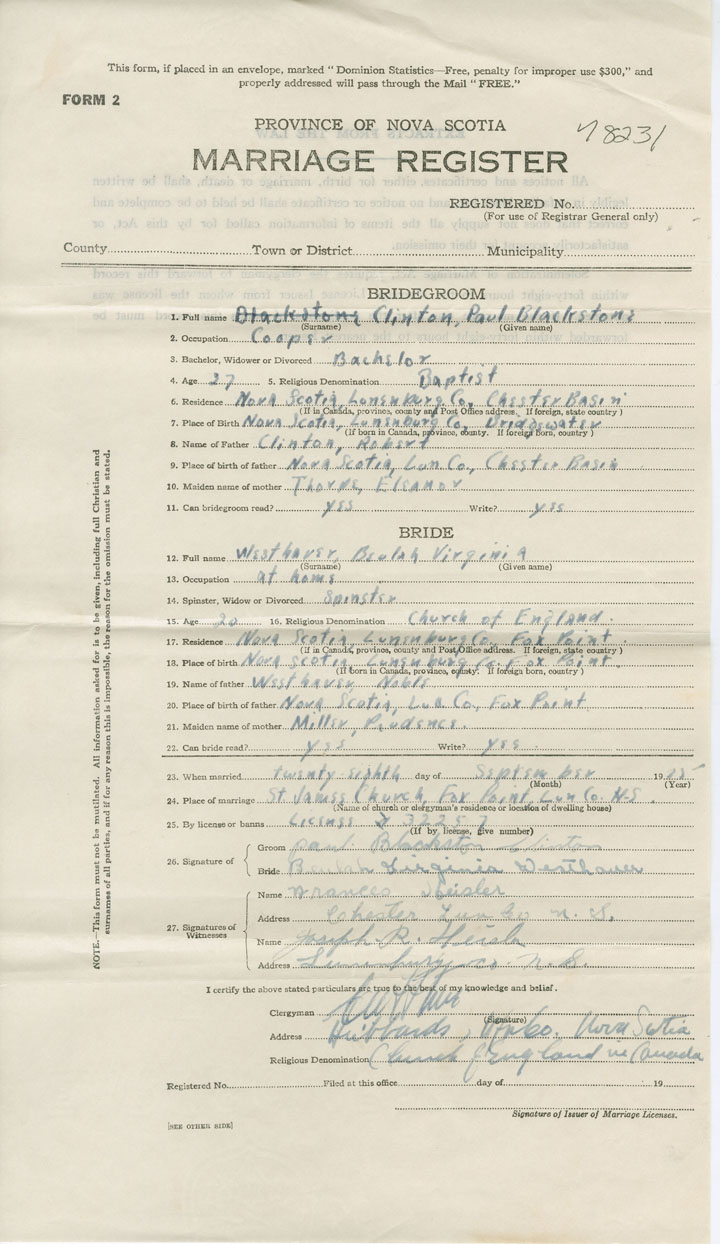 This form, if placed in an envelope, marked "Dominion Statistics—Free, penalty for improper use $300," and
properly addressed will pass through the Mail "FREE."
FORM 2
PROVINCE OF NOVA SCOTIA
78231
MARRIAGE REGISTER
REGISTERED No.
(For use of Registrar General only)
County Town or District Municipality
BRIDEGROOM
1. Full name Blackstone Clinton, Paul Blackstone
(Surname) (Given name)
2. Occupation Cooper
3. Bachelor, Widower or Divorced Bachelor
4. Age 27 5. Religious Denomination Baptist
6. Residence Nova Scotia, Lunenburg Co, Chester Basin
(If in Canada, province, county and Post Office address. If foreign, state country)
7. Place of Birth Nova Scotia, Lunenburg Co, Bridgewater
(If born in Canada, province, county. If foreign born, country)
8. Name of Father Clinton, Robert
9. Place of birth of father Nova Scotia, Lun Co, Chester Basin
10. Maiden name of mother Thorpe, Eleanor
11. Can bridegroom read? yes Write? yes
BRIDE
12. Full name Westhaver, Beulah Virginia
(Surname) (Given name)
13. Occupation at home
14. Spinster, Widow or Divorced Spinster
15. Age 20 16. Religious Denomination Church of England.
17. Residence Nova Scotia, Lunenburg Co, Fox Point
(If in Canada, province, county and Post Office address. If foreign, state country)
18. Place of birth Nova Scotia, Lunenburg Co, Fox Point
(If born in Canada, province, county. If foreign born, country)
19. Name of father Westhaver, Noble
20. Place of birth of father Nova Scotia, Lun Co, Fox Point
21. Maiden name of mother Miller, Prudence.
22. Can bride read? yes Write? yes
23. When married twenty-eighth day of September 19
(Month) (Year)
24. Place of marriage St James Church, Fox Point, Lun Co. N.S.
(Name of church or clergyman's residence or location of dwelling house)
25. By license or banns License
(If by license, give number)
26. Signature of
Groom Paul Blackston Clinton
Bride Beulah Virginia Westhaver
27. Signatures of Witnesses
Name Frances Heisler
Address Chester Lun Co N. S.
Name Joseph R. Heisler
Address Lunenburg co. N.S.
I certify the above stated particulars are true to the best of my knowledge and belief.
Clergyman
(Signature)
Address Hubbards, Nova Scotia
Religious Denomination Church of England in Canada
Registered No. Filed at this office day of 19
Signature of Issuer of Marriage Licenses.
[SEE OTHER SIDE]
NOTE.—This form must not be mutilated. All information asked for is to be given, including full Christian and
surnames of all parties, and if for any reason this is impossible, the reason for the omission must be stated.